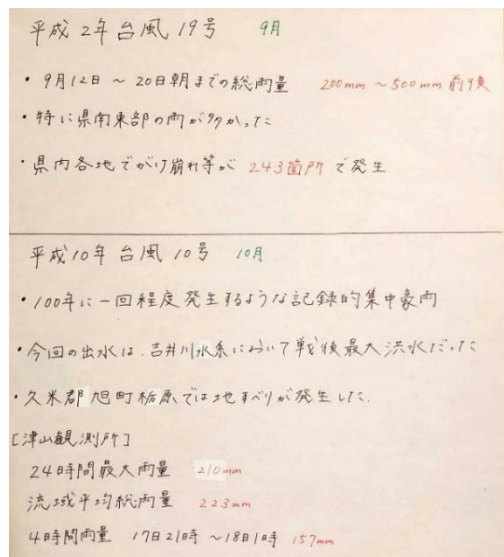 平成2年台風19号 9月
・9月12日〜20日朝までの総雨量 200mm〜500mm前後
・特に県南東部の雨が多かった
・県内各地でがけ崩れ等が243箇所で発生
平成10年台風10号 10月
・100年に一回程度発生するような記録的集中豪雨
・今回の出水は、吉井川水系において戦後最大洪水だった
・久米郡旭町栃原では地すべりが発生した.
[津山観測所]
24時間最大雨量 210mm
流域平均総雨量 223mm
4時間雨量 17日21時〜18日1時 157mm